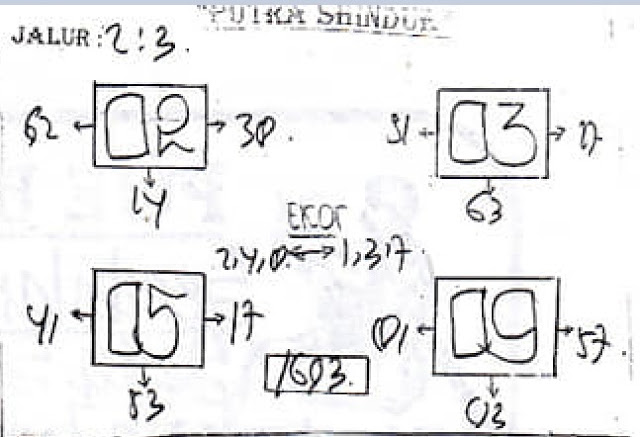 "PUTRA SHINDUK
JALUR : 2 : 3 .
62 ← 02 → 30 .
↓
14
51 ← 03 → 17
↓
63
EKOR
2,4,0 ↔ 1,3,7 .
41 ← 05 → 17
↓
53
1603.
01 ← 09 → 57 .
↓
03